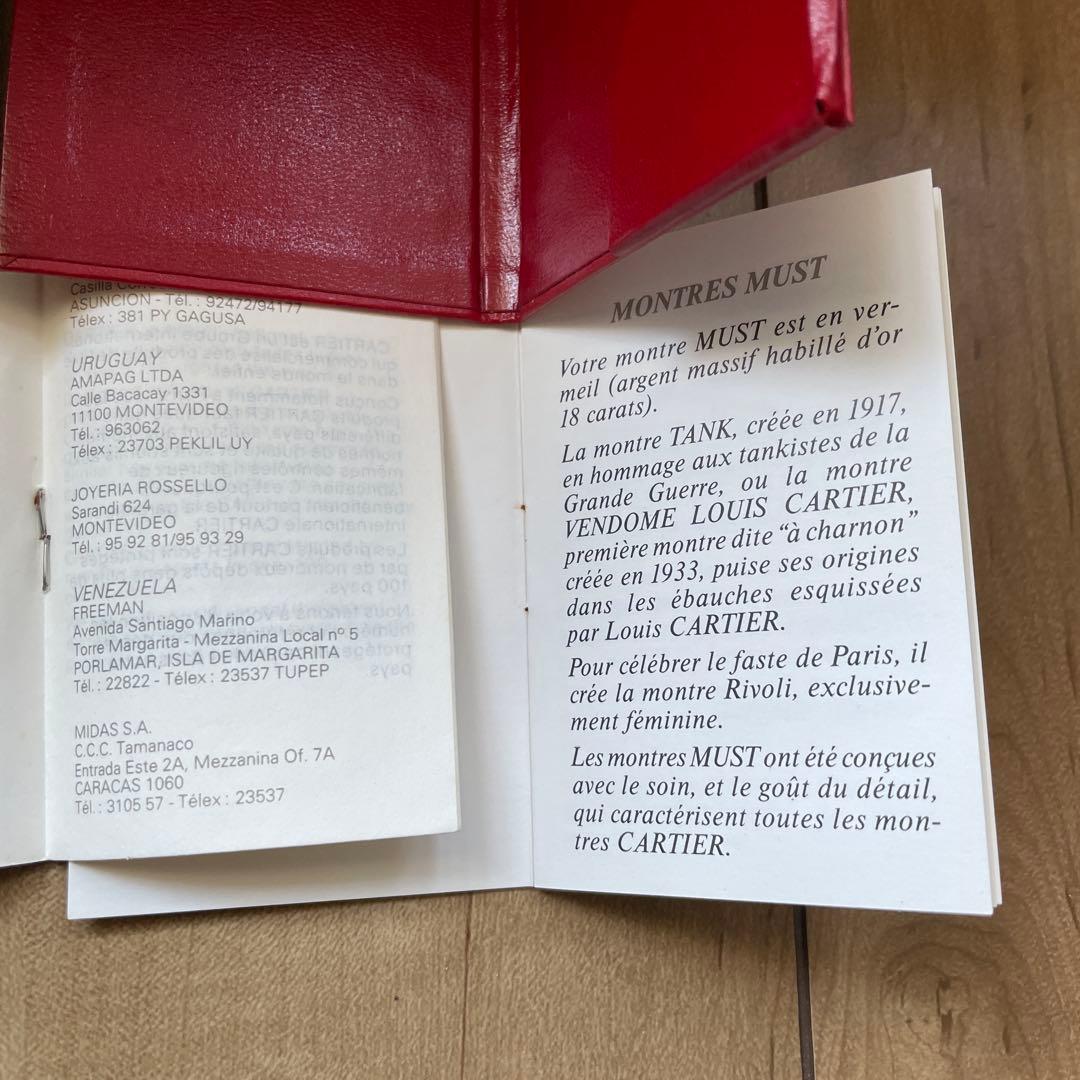 Casilla
ASUNCION - Tél. : 92472/94177
Télex : 381 PY GAGUSA
URUGUAY
AMAPAG LTDA
Calle Bacacay 1331
11100 MONTEVIDEO
Tél. : 963062
Télex : 23703 PEKLIL UY
JOYERIA ROSSELLO
Sarandi 624
MONTEVIDEO
Tél. : 95 92 81/95 93 29
VENEZUELA
FREEMAN
Avenida Santiago Marino
Torre Margarita - Mezzanina Local nº 5
PORLAMAR, ISLA DE MARGARITA
Tél. : 22822 - Télex : 23537 TUPEP
MIDAS S.A.
C.C.C. Tamanaco
Entrada Este 2A, Mezzanina Of. 7A
CARACAS 1060
Tél. : 3105 57 - Télex : 23537
MONTRES MUST
Votre montre MUST est en ver-
meil (argent massif habillé d'or
18 carats).
La montre TANK, créée en 1917,
en hommage aux tankistes de la
Grande Guerre, ou la montre
VENDOME LOUIS CARTIER,
première montre dite "à charnon"
créée en 1933, puise ses origines
dans les ébauches esquissées
par Louis CARTIER.
Pour célébrer le faste de Paris, il
crée la montre Rivoli, exclusive-
ment féminine.
Les montres MUST ont été conçues
avec le soin, et le goût du détail,
qui caractérisent toutes les mon-
tres CARTIER.